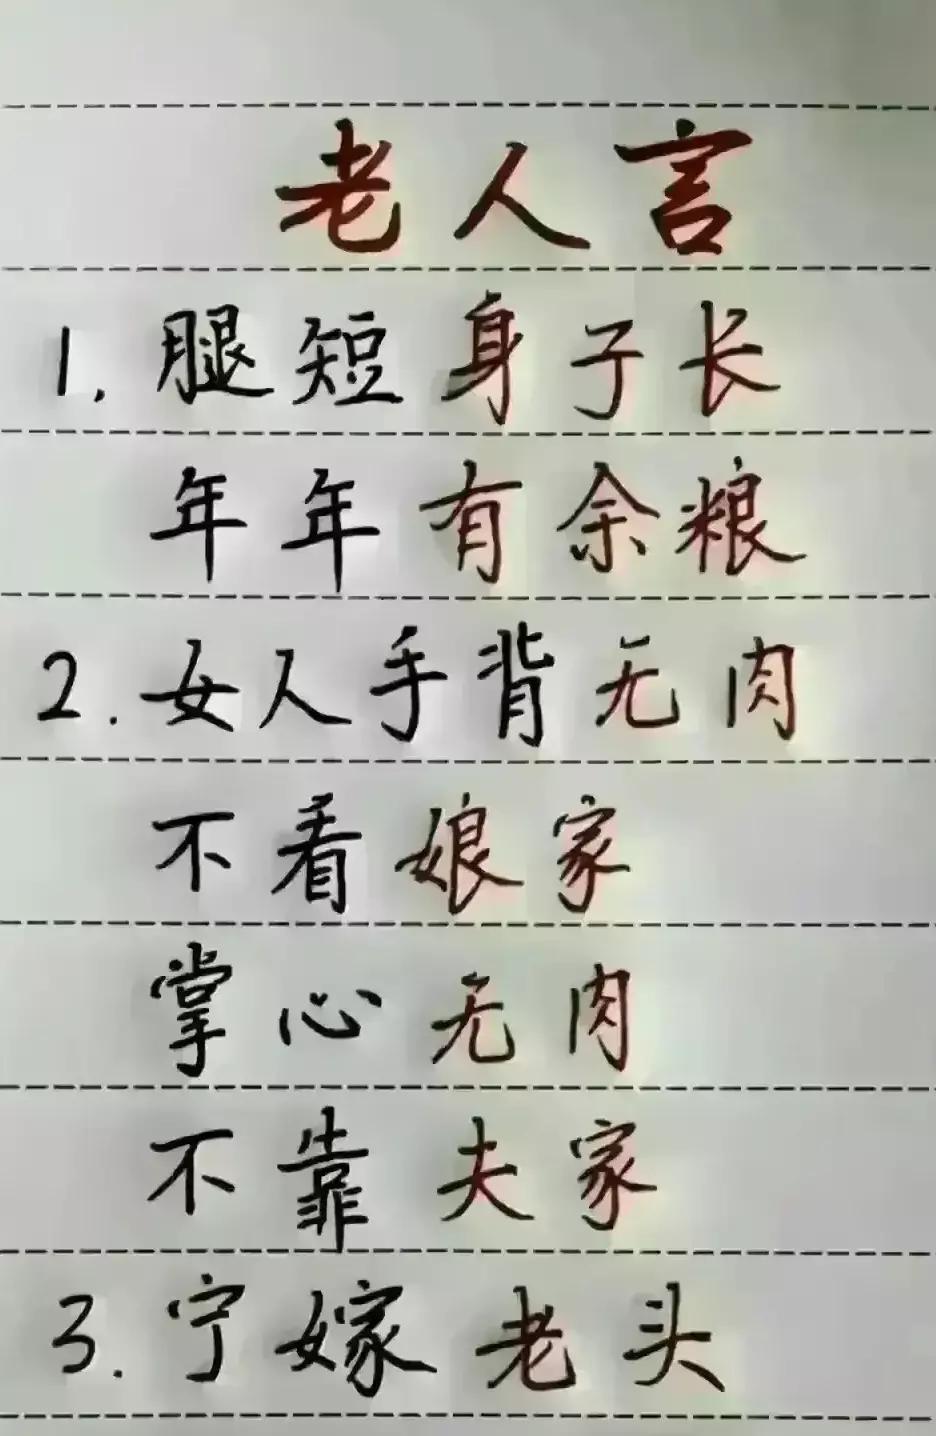 老人言
1. 腿短身子长
年年有余粮
2. 女人手背无肉
不看娘家
掌心无肉
不靠夫家
3. 宁嫁老头